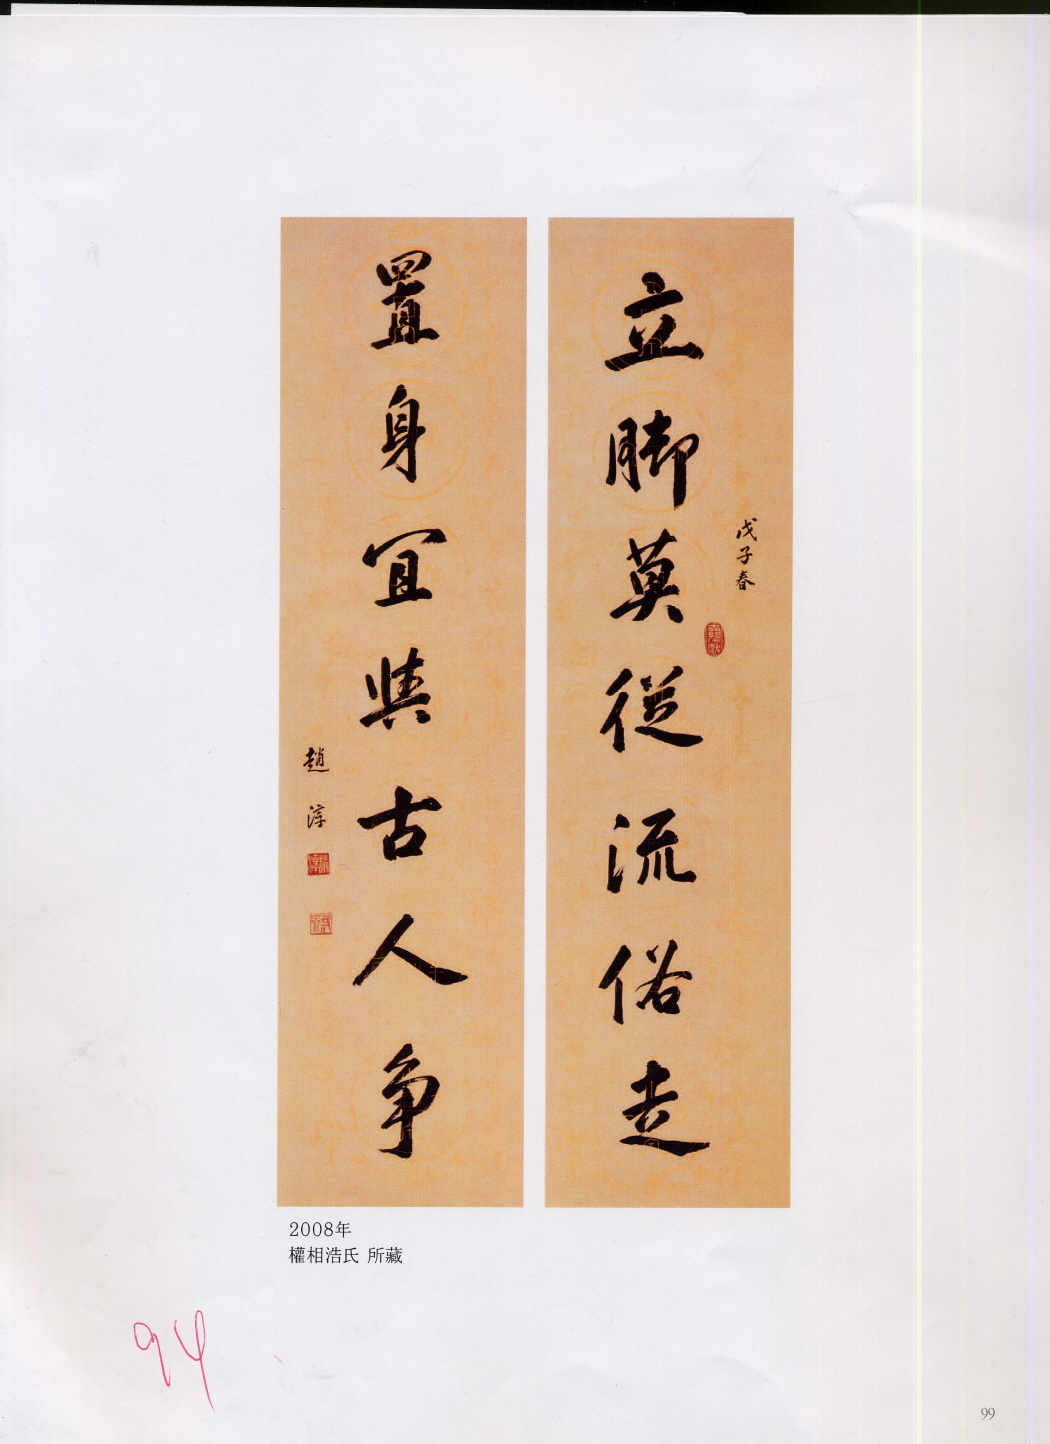 戊子春
立脚莫從流俗走
置身宜與古人爭
趙淳
2008年
權相浩氏 所藏
94
99